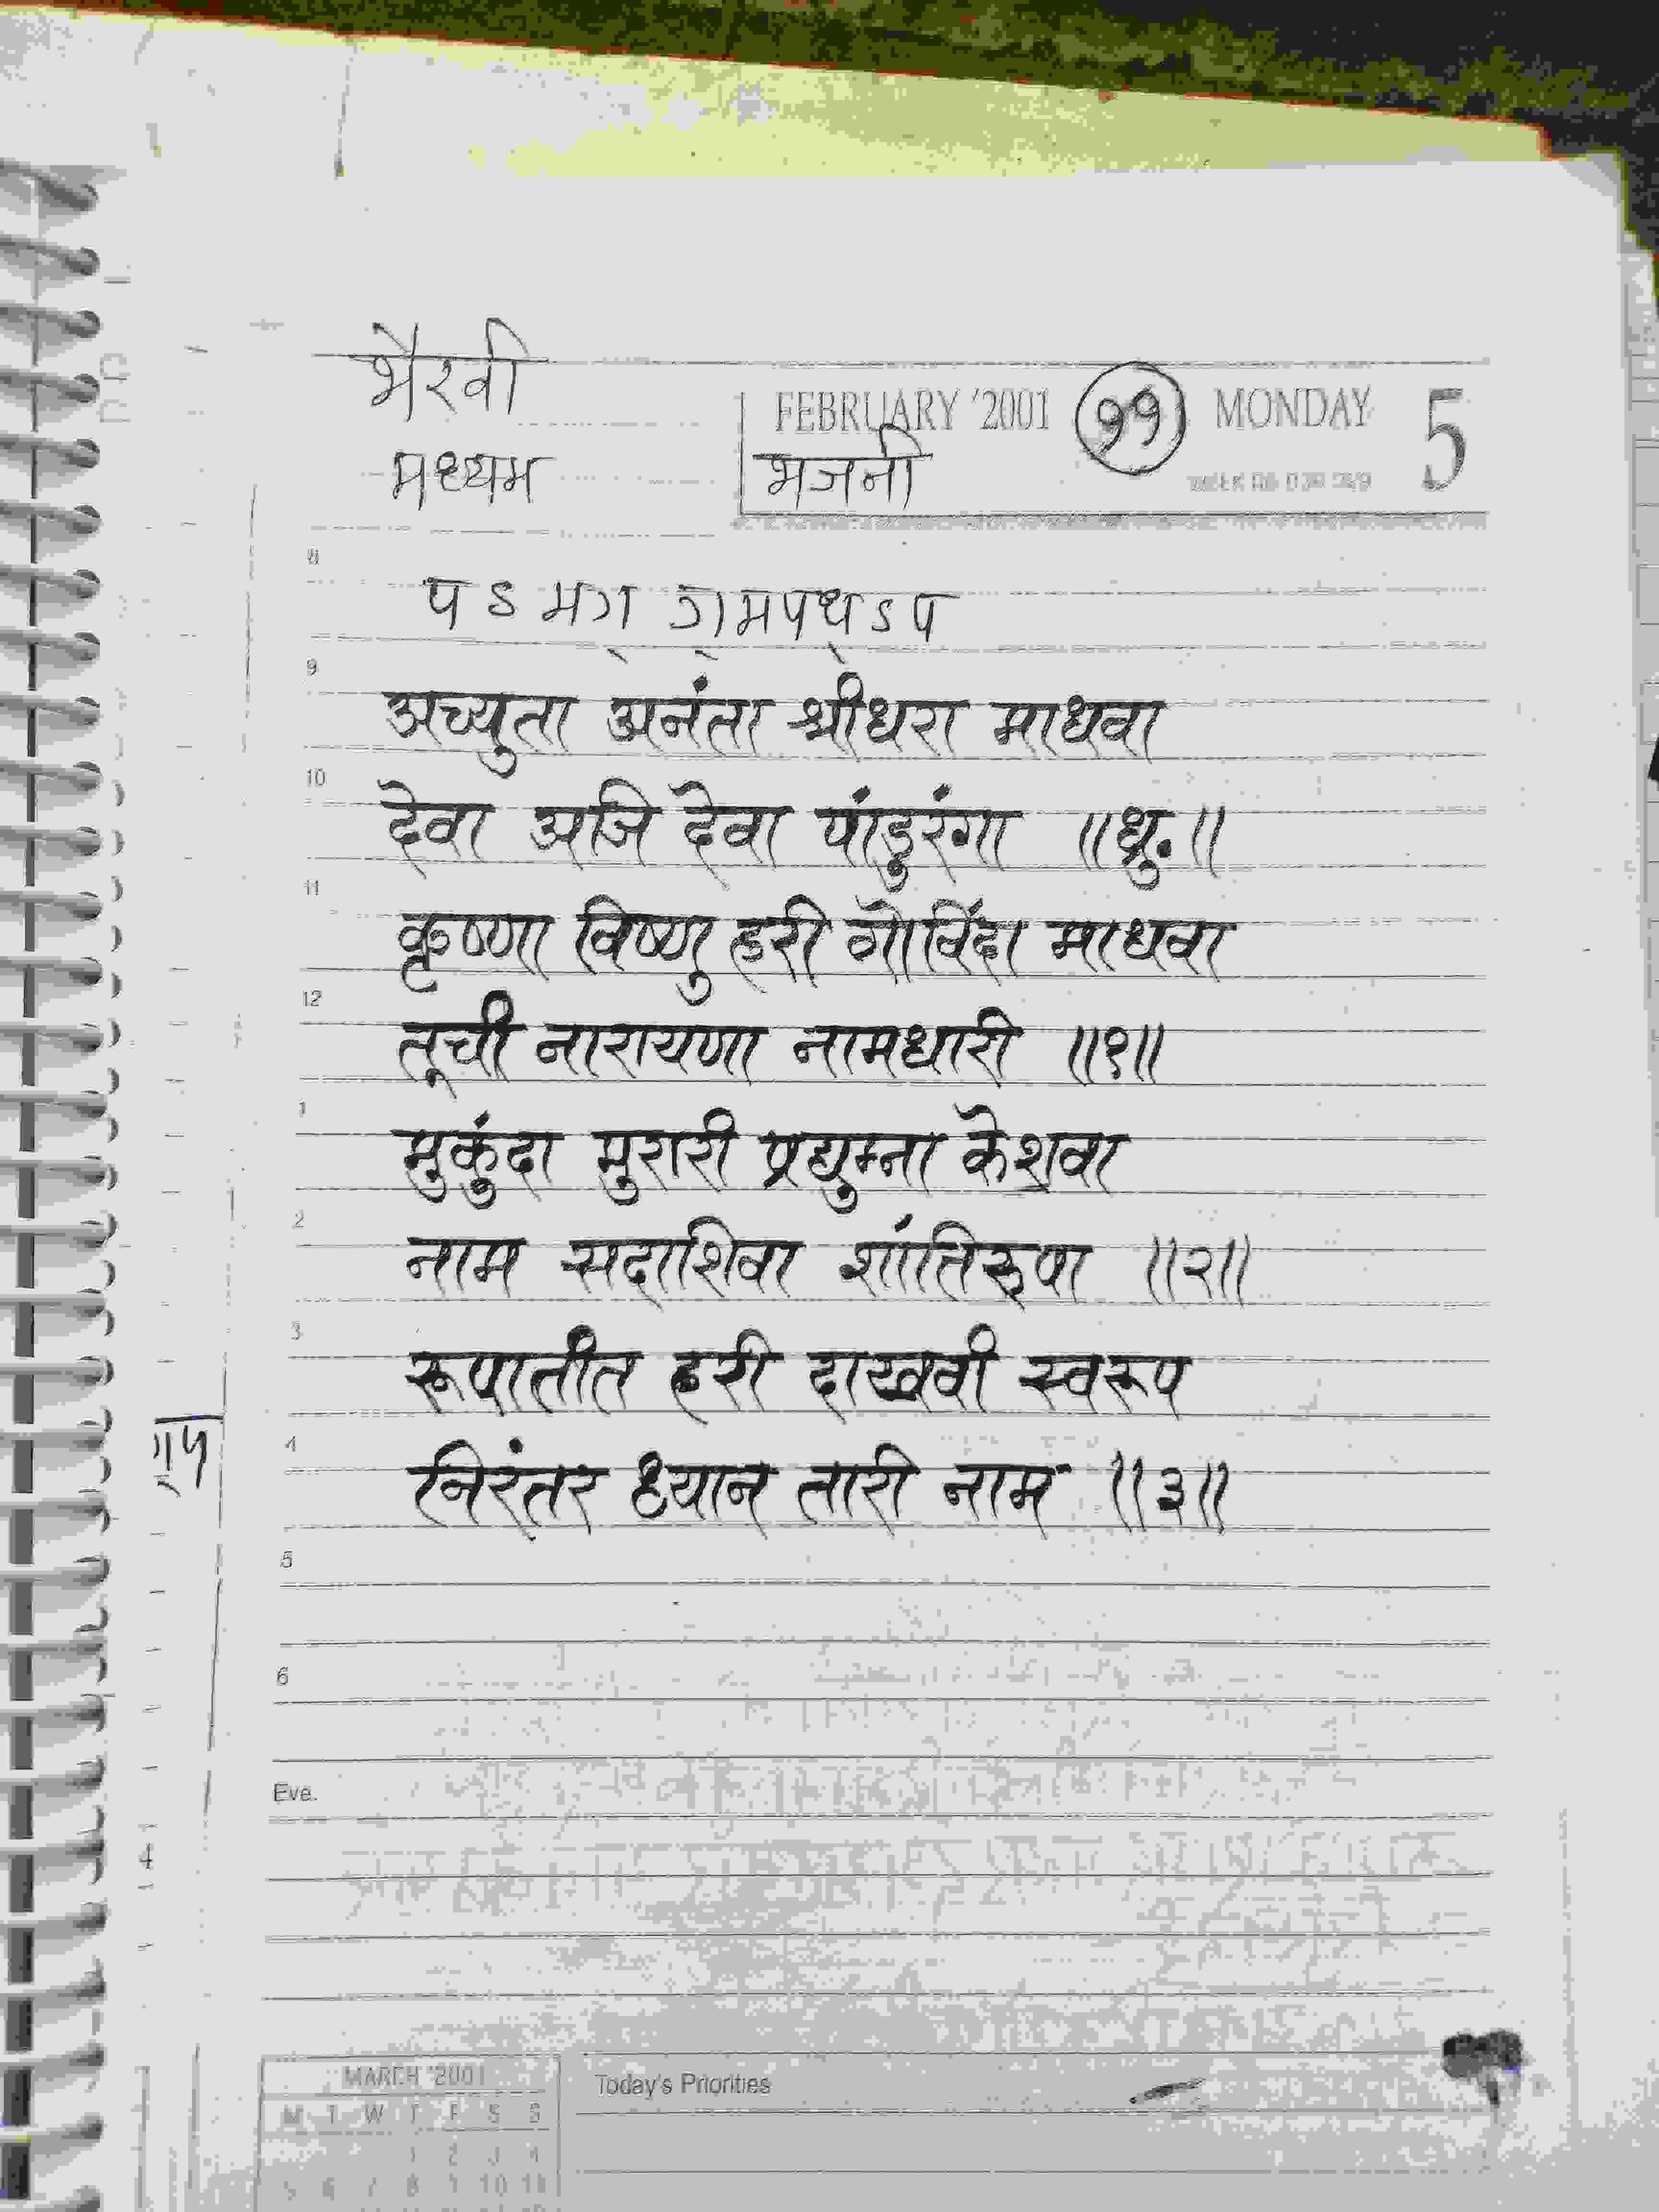 भैरवी
FEBRUARY '2001 ११ MONDAY 5
मध्यम भजनी
8
प ऽ मग गमपध ऽ प
9
अच्युता अनंता श्रीधरा माधवा
10
देवा आजि देवा पांडुरंगा ॥ध्रु.॥
11
कृष्णा विष्णु हरी गोविंदा माधवा
12
तूची नारायणा नामधारी ॥१॥
1
मुकुंदा मुरारी प्रद्युम्ना केशवा
2
नाम सदाशिवा शांतिरूपा ॥२॥
3
रूपातीत हरी दाखवी स्वरूप
4
निरंतर ध्यान तारी नाम ॥३॥
5
6
Eve.
MARCH '2001
M T W T F S S
1 2 3 4
5 6 7 8 9 10 11
Today's Priorities